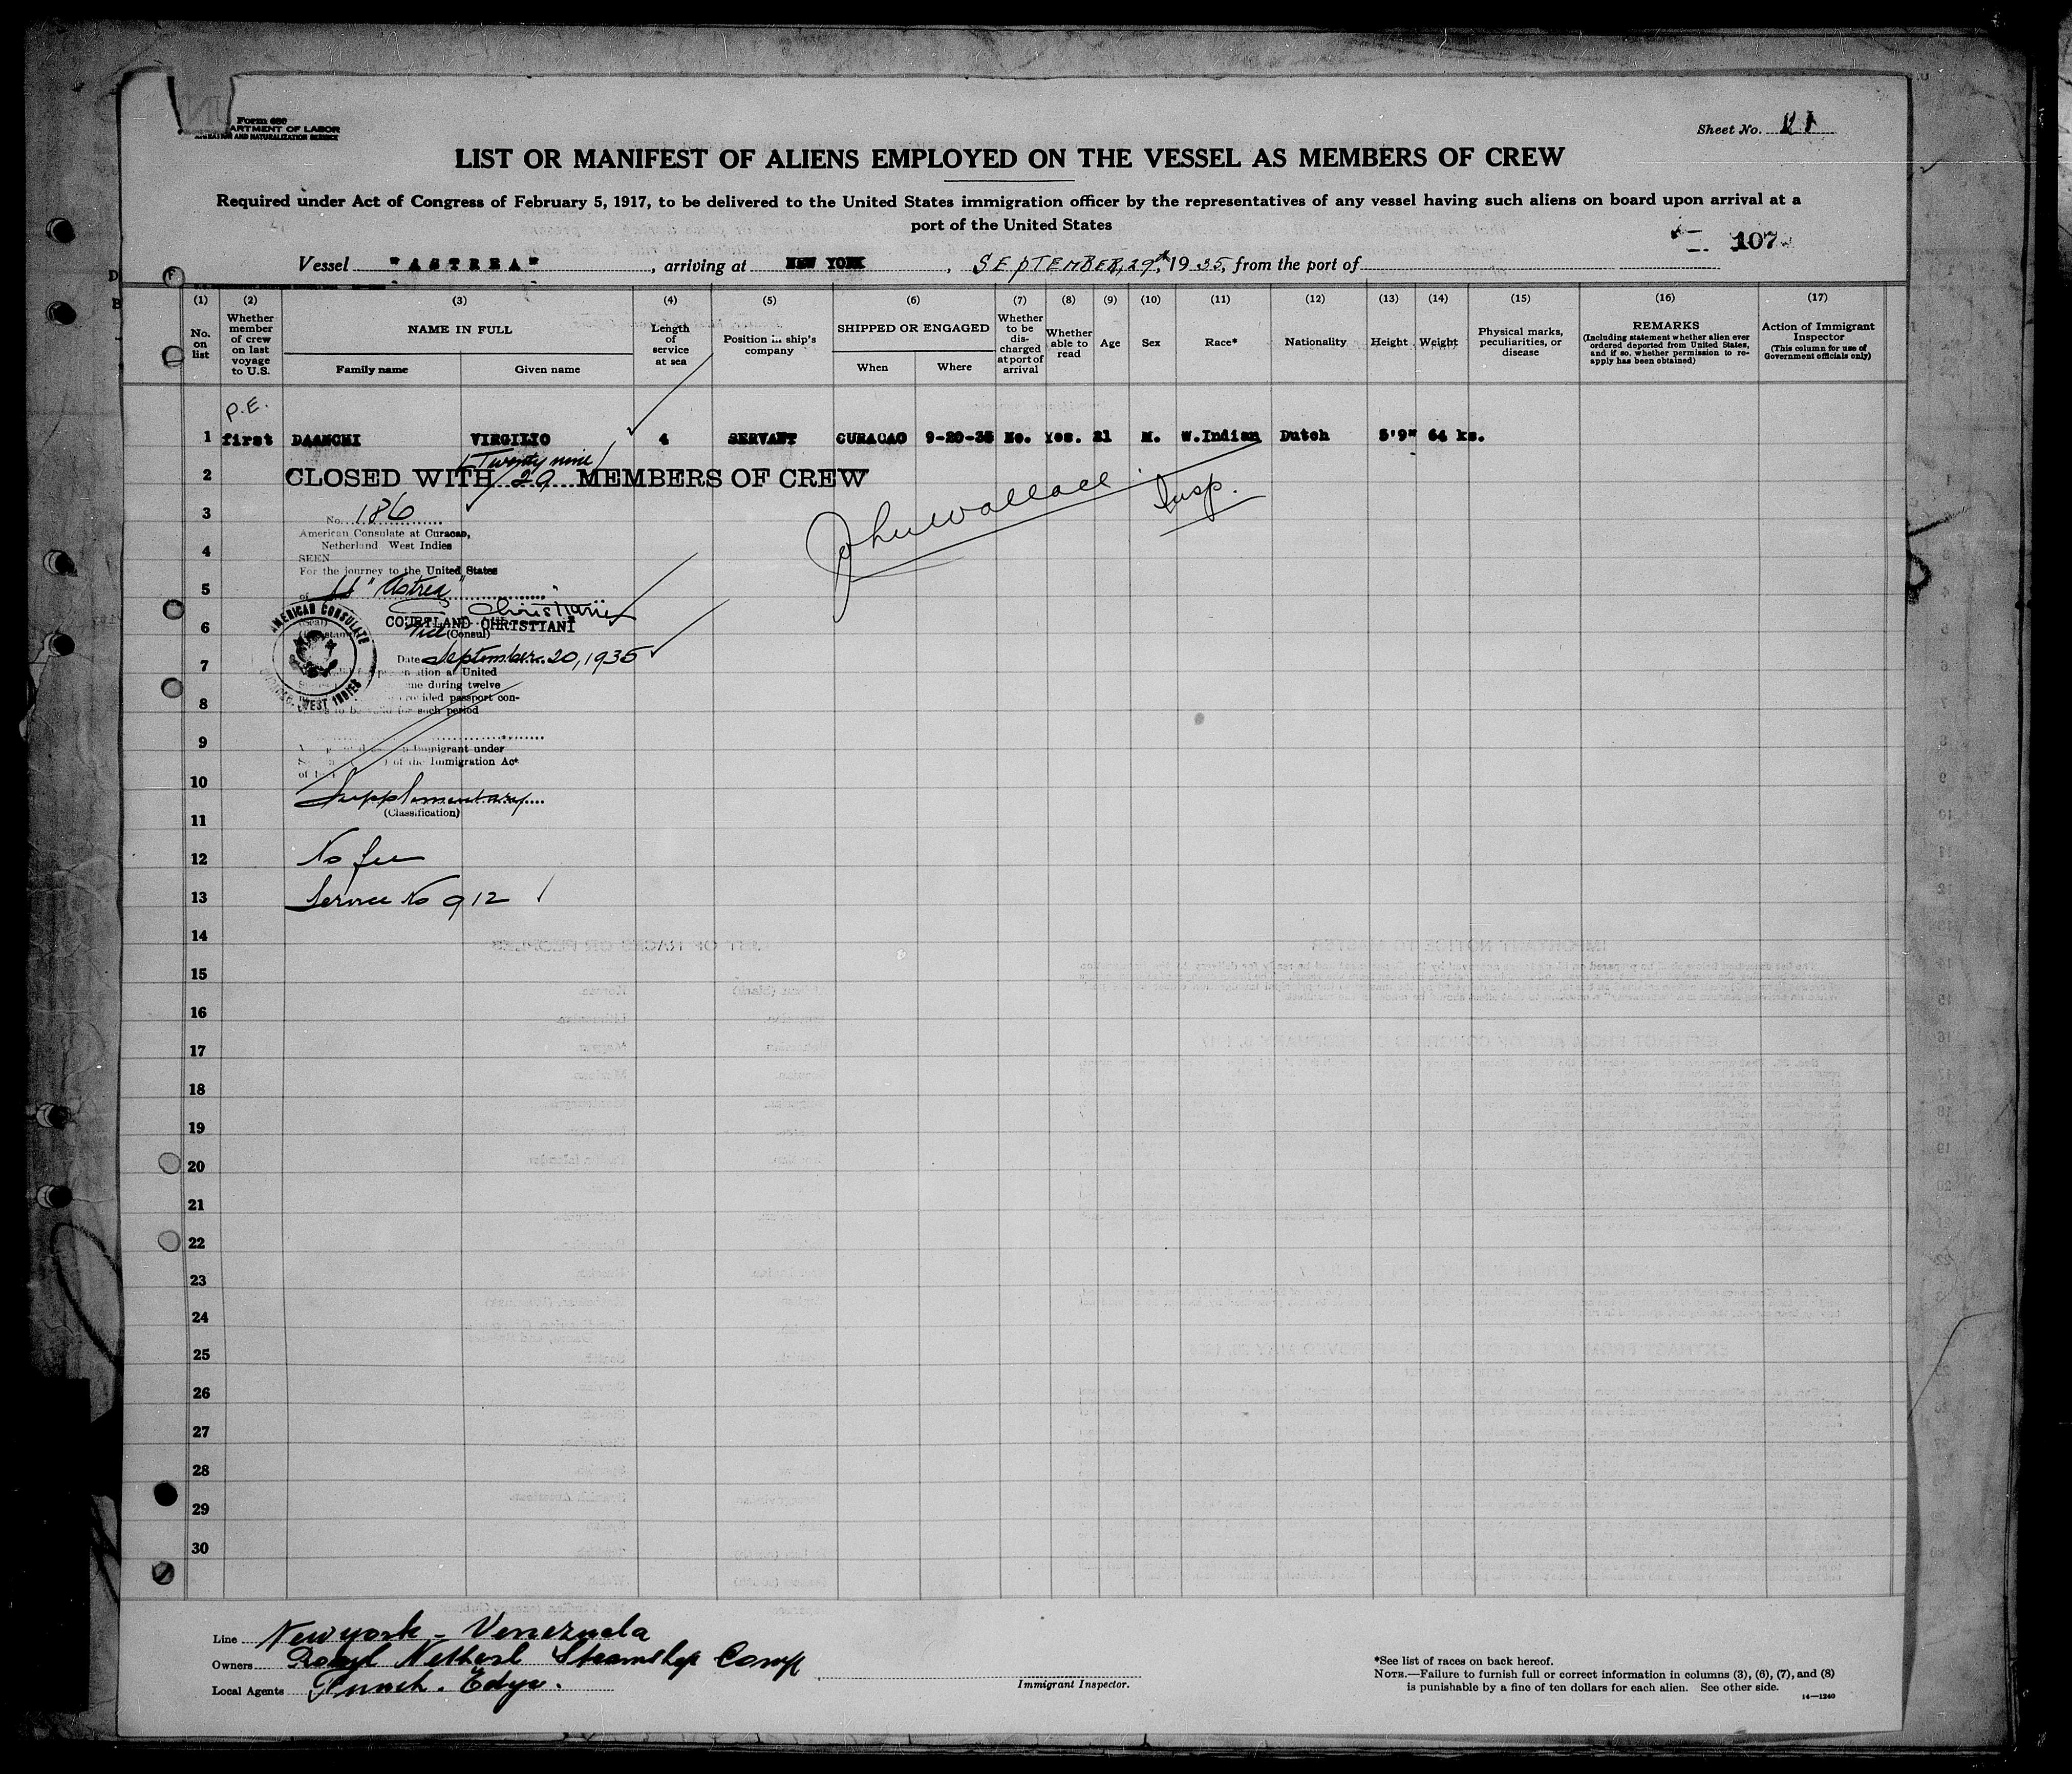 Form 680
ARTMENT OF LABOR
AND NATURALIZATION SERVICE
Sheet No.
LIST OR MANIFEST OF ALIENS EMPLOYED ON THE VESSEL AS MEMBERS OF CREW
Required under Act of Congress of February 5, 1917, to be delivered to the United States immigration officer by the representatives of any vessel having such aliens on board upon arrival at a
port of the United States
107
Vessel "ASTREA", arriving at NEW YORK, SEPTEMBER, 29th, 1935, from the port of
(1) (2) (3) (4) (5) (6) (7) (8) (9) (10) (11) (12) (13) (14) (15) (16) (17)
No. on list
Whether member of crew on last voyage to U.S.
NAME IN FULL
Family name
Given name
Length of service at sea
Position in ship's company
SHIPPED OR ENGAGED
When
Where
Whether to be discharged at port of arrival
Whether able to read
Age
Sex
Race*
Nationality
Height
Weight
Physical marks, peculiarities, or disease
REMARKS
(Including statement whether alien ever ordered deported from United States, and if so, whether permission to reapply has been obtained)
Action of Immigrant Inspector
(This column for use of Government officials only)
P.E.
1 first DAANCHI VIRGILIO 4 SERVANT CURACAO 9-20-35 No. Yes. 21 M. W.Indian Dutch 5'9" 64 ks.
Twenty nine
2 CLOSED WITH 29 MEMBERS OF CREW
John Wallace Insp.
3 No. 186
American Consulate at Curacao,
Netherland West Indies
4 SEEN
For the journey to the United States
5 of "Astrea"
Christiani
COURTLAND CHRISTIANI
6 Vice (Consul)
AMERICAN CONSULATE
WEST INDIES
7 Date September 20, 1935
ation at United
during twelve
passport con-
8 to be valid for such period
9 Immigrant under
of the Immigration Act
10 of
Supplementary
(Classification)
11
12 No fee
13 Service No 912
14
15
16
17
18
19
20
21
22
23
24
25
26
27
28
29
30
Line New york - Venezuela
Owners Royal Netherl Steamship Comp
Local Agents Funch. Edye.
Immigrant Inspector.
*See list of races on back hereof.
NOTE.—Failure to furnish full or correct information in columns (3), (6), (7), and (8)
is punishable by a fine of ten dollars for each alien. See other side.
14—1240